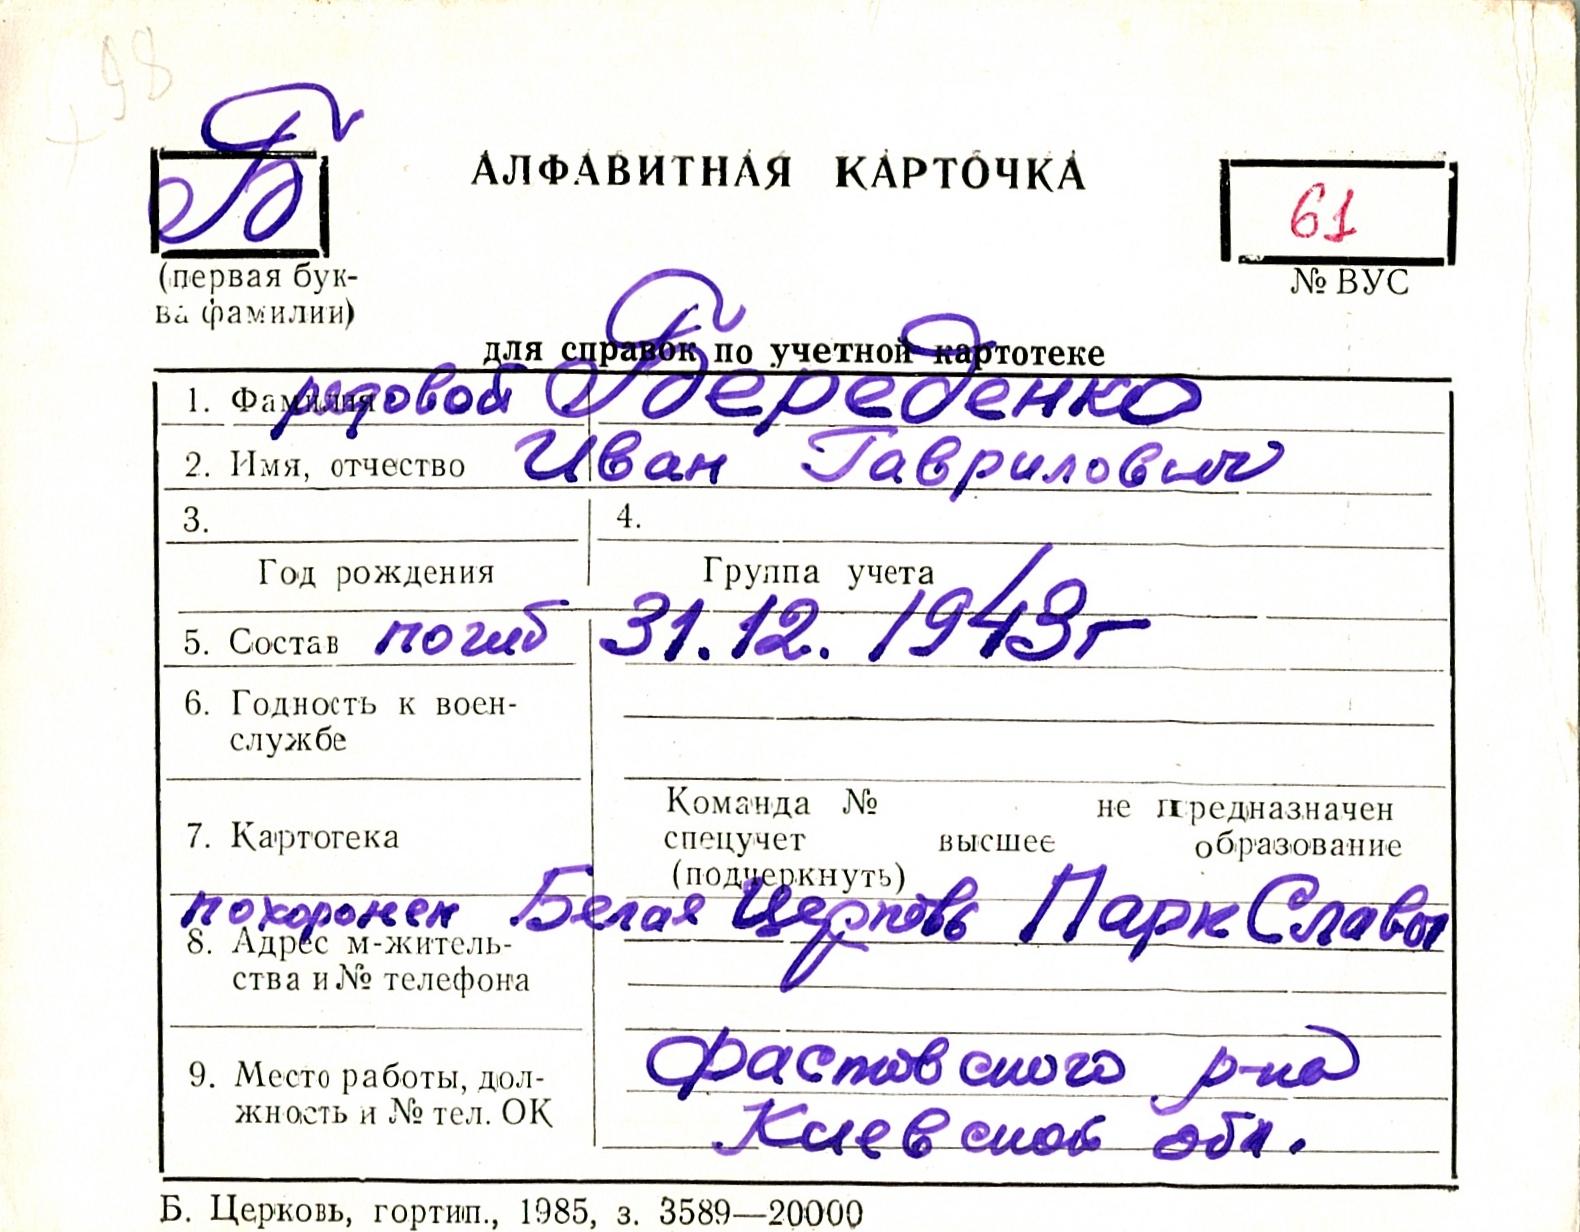 498
Б
АЛФАВИТНАЯ КАРТОЧКА
61
(первая бук-
ва фамилии)
№ ВУС
для справок по учетной картотеке
1. Фамилия рядовой Береденко
2. Имя, отчество Иван Гаврилович
3. 4.
Год рождения Группа учета
5. Состав погиб 31.12.1943г
6. Годность к воен-
службе
Команда № не предназначен
7. Картотека спецучет высшее образование
(подчеркнуть)
похоронен Белая Церковь Парк Славы
8. Адрес м-житель-
ства и № телефона
Фастовского р-на
9. Место работы, дол-
жность и № тел. ОК
Киевской обл.
Б. Церковь, гортип., 1985, з. 3589—20000